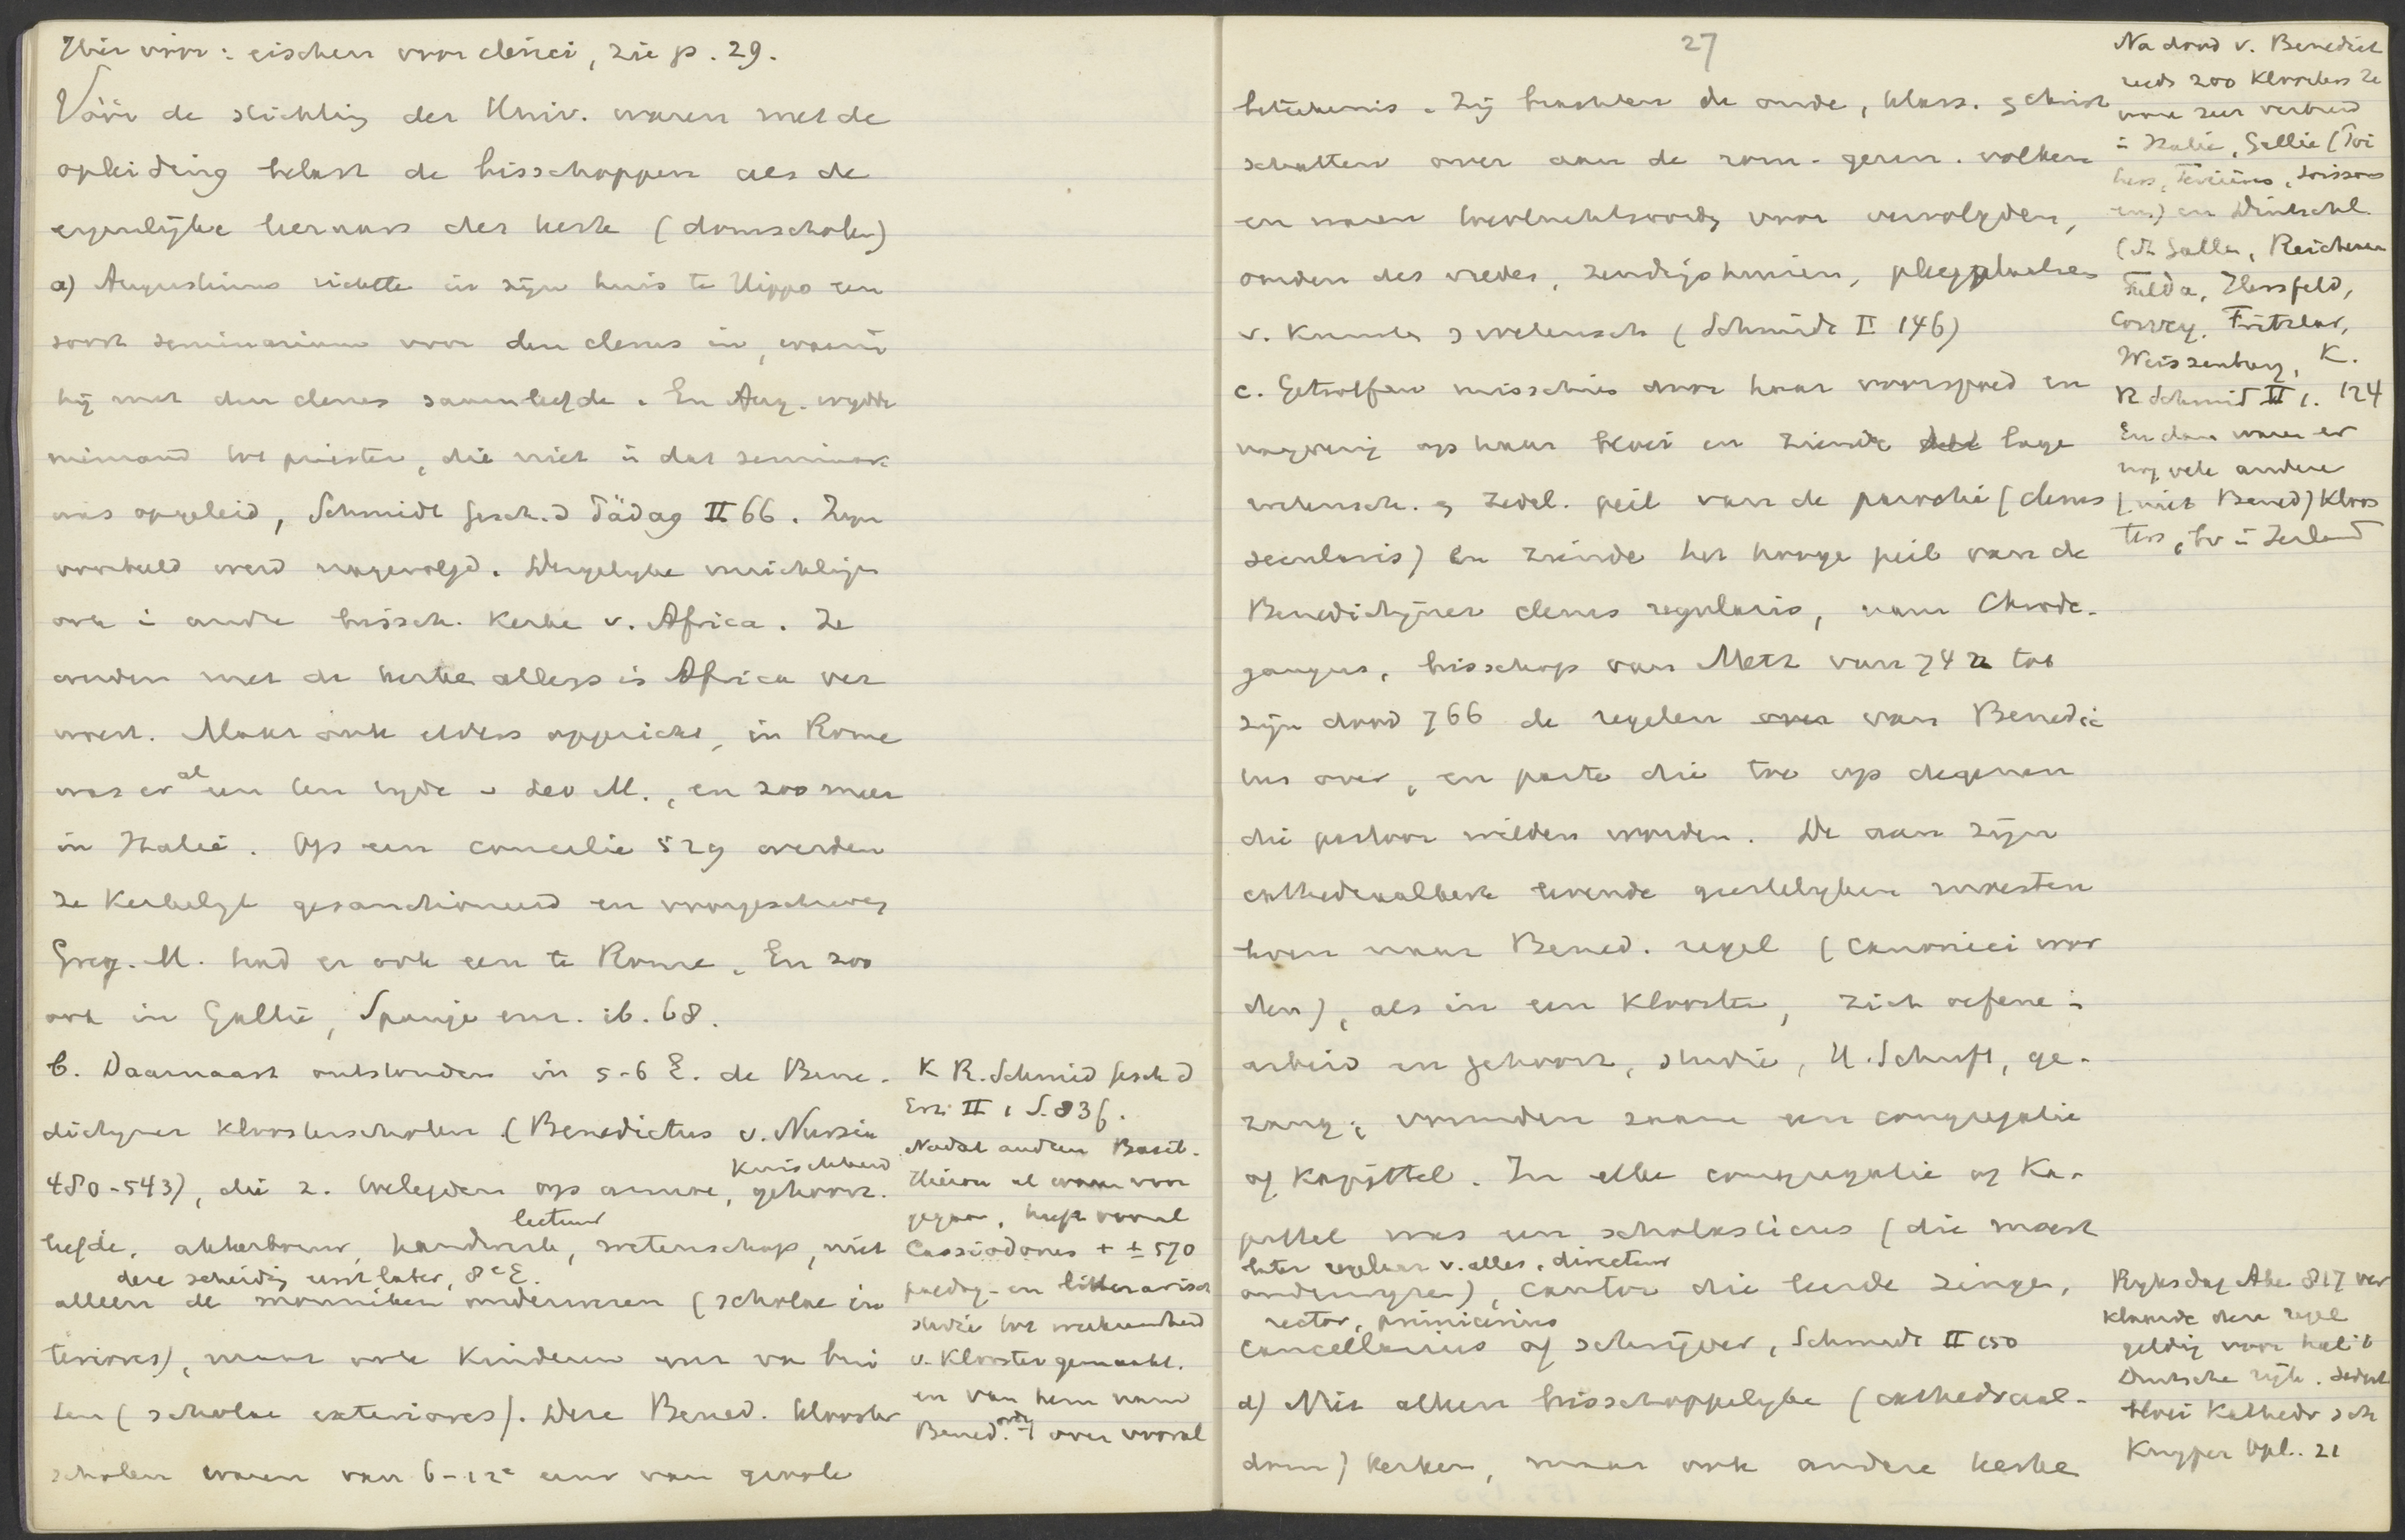 Hier vóór: eischen voor clerici, zie p. 29.
Vóór de stichting der Univ. waren met de
opleiding belast de bisschoppen als de
eigenlijke leeraars der kerk (domscholen)
a) Augustinus richtte in zijn huis te Hippo een
soort seminarium voor den clerus in, waarin
hij met den clerus samenleefde. En Aug. wijdde
niemand tot priester, die niet in dat seminar.
was opgeleid, Schmidt Gesch. d Pädag II 66. Zijn
voorbeeld werd nagevolgd. Dergelijke inrichtingen
ook i andre bissch. kerke v. Africa. Ze
werden met de kerke alless in Africa ver
woest. Maar ook elders opgericht, in Rome
was er al een ten tyde v Leo M., en zoo meer
in Italië. Op een concilie 529 werden
ze kerkelijk gesanctioneerd en voorgeschreven
Greg. M. had er ook een te Rome. En zoo
ook in Gallië, Spanje enz. ib. 68.
b. Daarnaast ontstonden in 5-6 E. de Bene-
dictijner kloosterscholen (Benedictus v. Nursia
480-543), die z. toelegden op armoe, kuischheid gehoorz.
liefde, akkerbouw, lectuur handwerk, wetenschap, niet
deze scheiding eerst later, 8e E.
alleen de monniken onderwezen (scholae in
teriores), maar ook kinderen enz van bui
ten (scholae exteriores). Deze Bened. klooster
scholen waren van 6-12e eeuw van groote
K R. Schmid Gesch d
Erz. II 1 S. 83f.
Nadat andren Basil.
Hieron al waren voor
gegaan, heeft vooral
Cassiodorus + ± 570
paedag- en litterarisch
studie tot werkzaamheid
v. klooster gemaakt.
en van hem nam
Bened. orde over vooral
27
beteekenis. Zij brachten de oude, klass. & christ
schatten over aan de rom.-germ. volken
en waren toevluchtsoorden voor vervolgden,
oorden des vredes, zendingshuizen, pleegplaatsen
v. kunst & wetensch (Schmidt II 146)
c. Getroffen misschien door haar voorspoed en
naijverig op haar bloei en ziende het lage
wetensch. & zedel. peil van de parochie (clerus
secularis) en ziende het hooge peil van de
Benedictijner clerus regularis, nam Chrode-
gangus, bisschop van Metz van 742 tot
zijn dood 766 de regelen over van Benedic
tus over, en paste die toe op degenen
die pastoor wilden worden. De aan zijn
cathedraalkerk levende geestelijken moesten
leven naar Bened. regel (canonici wor
den), als in een klooster, zich oefene i
arbeid en gehoorz, studie, H. Schrift, ge-
zang; vormden zaam een congregatie
of kapittel. In elke congregatie of Ka-
pittel was een scholasticus (die moest
later regelaar v. alles, directeur
onderwijzen), cantor die leerde zingen,
rector, primicerius
cancellarius of schrijver, Schmidt II 150
d) Niet alleen bisschoppelijke (cathedraal-
dom) kerken, maar ook andere kerke
Na dood v. Benedict
reeds 200 kloosters Ze
ware zeer verbreid
in Italië, Gallië (Poi
tiers, Soissons
enz) en Duitschl.
(St Gallen, Reichenau
Fulda, Hersfeld,
Corvey, Fritzlar,
Weissenburg, K.
R Schmid II 1. 124
En dan waren er
nog vele andere
(niet Bened) kloos
ters, bv in Ierland
Ryksdag Ake 817 ver
klaarde deze regel
geldig voor heel 't
Duitsche rijk. Sedert
bloei Kathedr sch
Kuyper Opl. 21